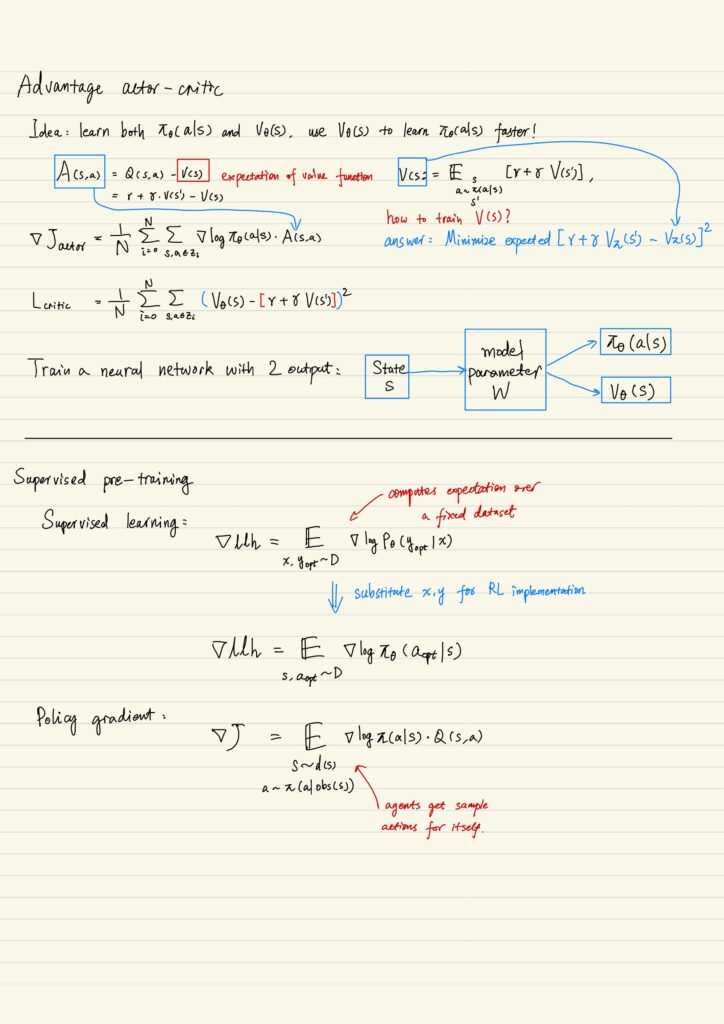 Advantage actor-critic
Idea: learn both πθ(a|s) and Vθ(s), use Vθ(s) to learn πθ(a|s) faster!
A(s,a) = Q(s,a) - V(s) expectation of value function
= r + γ·V(s') - V(s)
V(s) = 𝔼 s a~π(a|s) s' [r + γ V(s')],
how to train V(s)?
answer: Minimize expected [r + γ Vπ(s') - Vπ(s)]²
∇Jactor = 1/N Σ i=0 N Σ s,a∈zi ∇logπθ(a|s)·A(s,a)
Lcritic = 1/N Σ i=0 N Σ s,a∈zi (Vθ(s) - [r + γ V(s')])²
Train a neural network with 2 output:
State
S
model
parameter
W
πθ(a|s)
Vθ(s)
Supervised pre-training
computes expectation over
a fixed dataset
Supervised learning:
∇llh = 𝔼 x, yopt~D ∇log Pθ(yopt|x)
substitute x,y for RL implementation
∇llh = 𝔼 s, aopt~D ∇log πθ(aopt|s)
Policy gradient:
∇J = 𝔼 s~d(s) a~π(a|obs(s)) ∇logπ(a|s)·Q(s,a)
agents get sample
actions for itself.